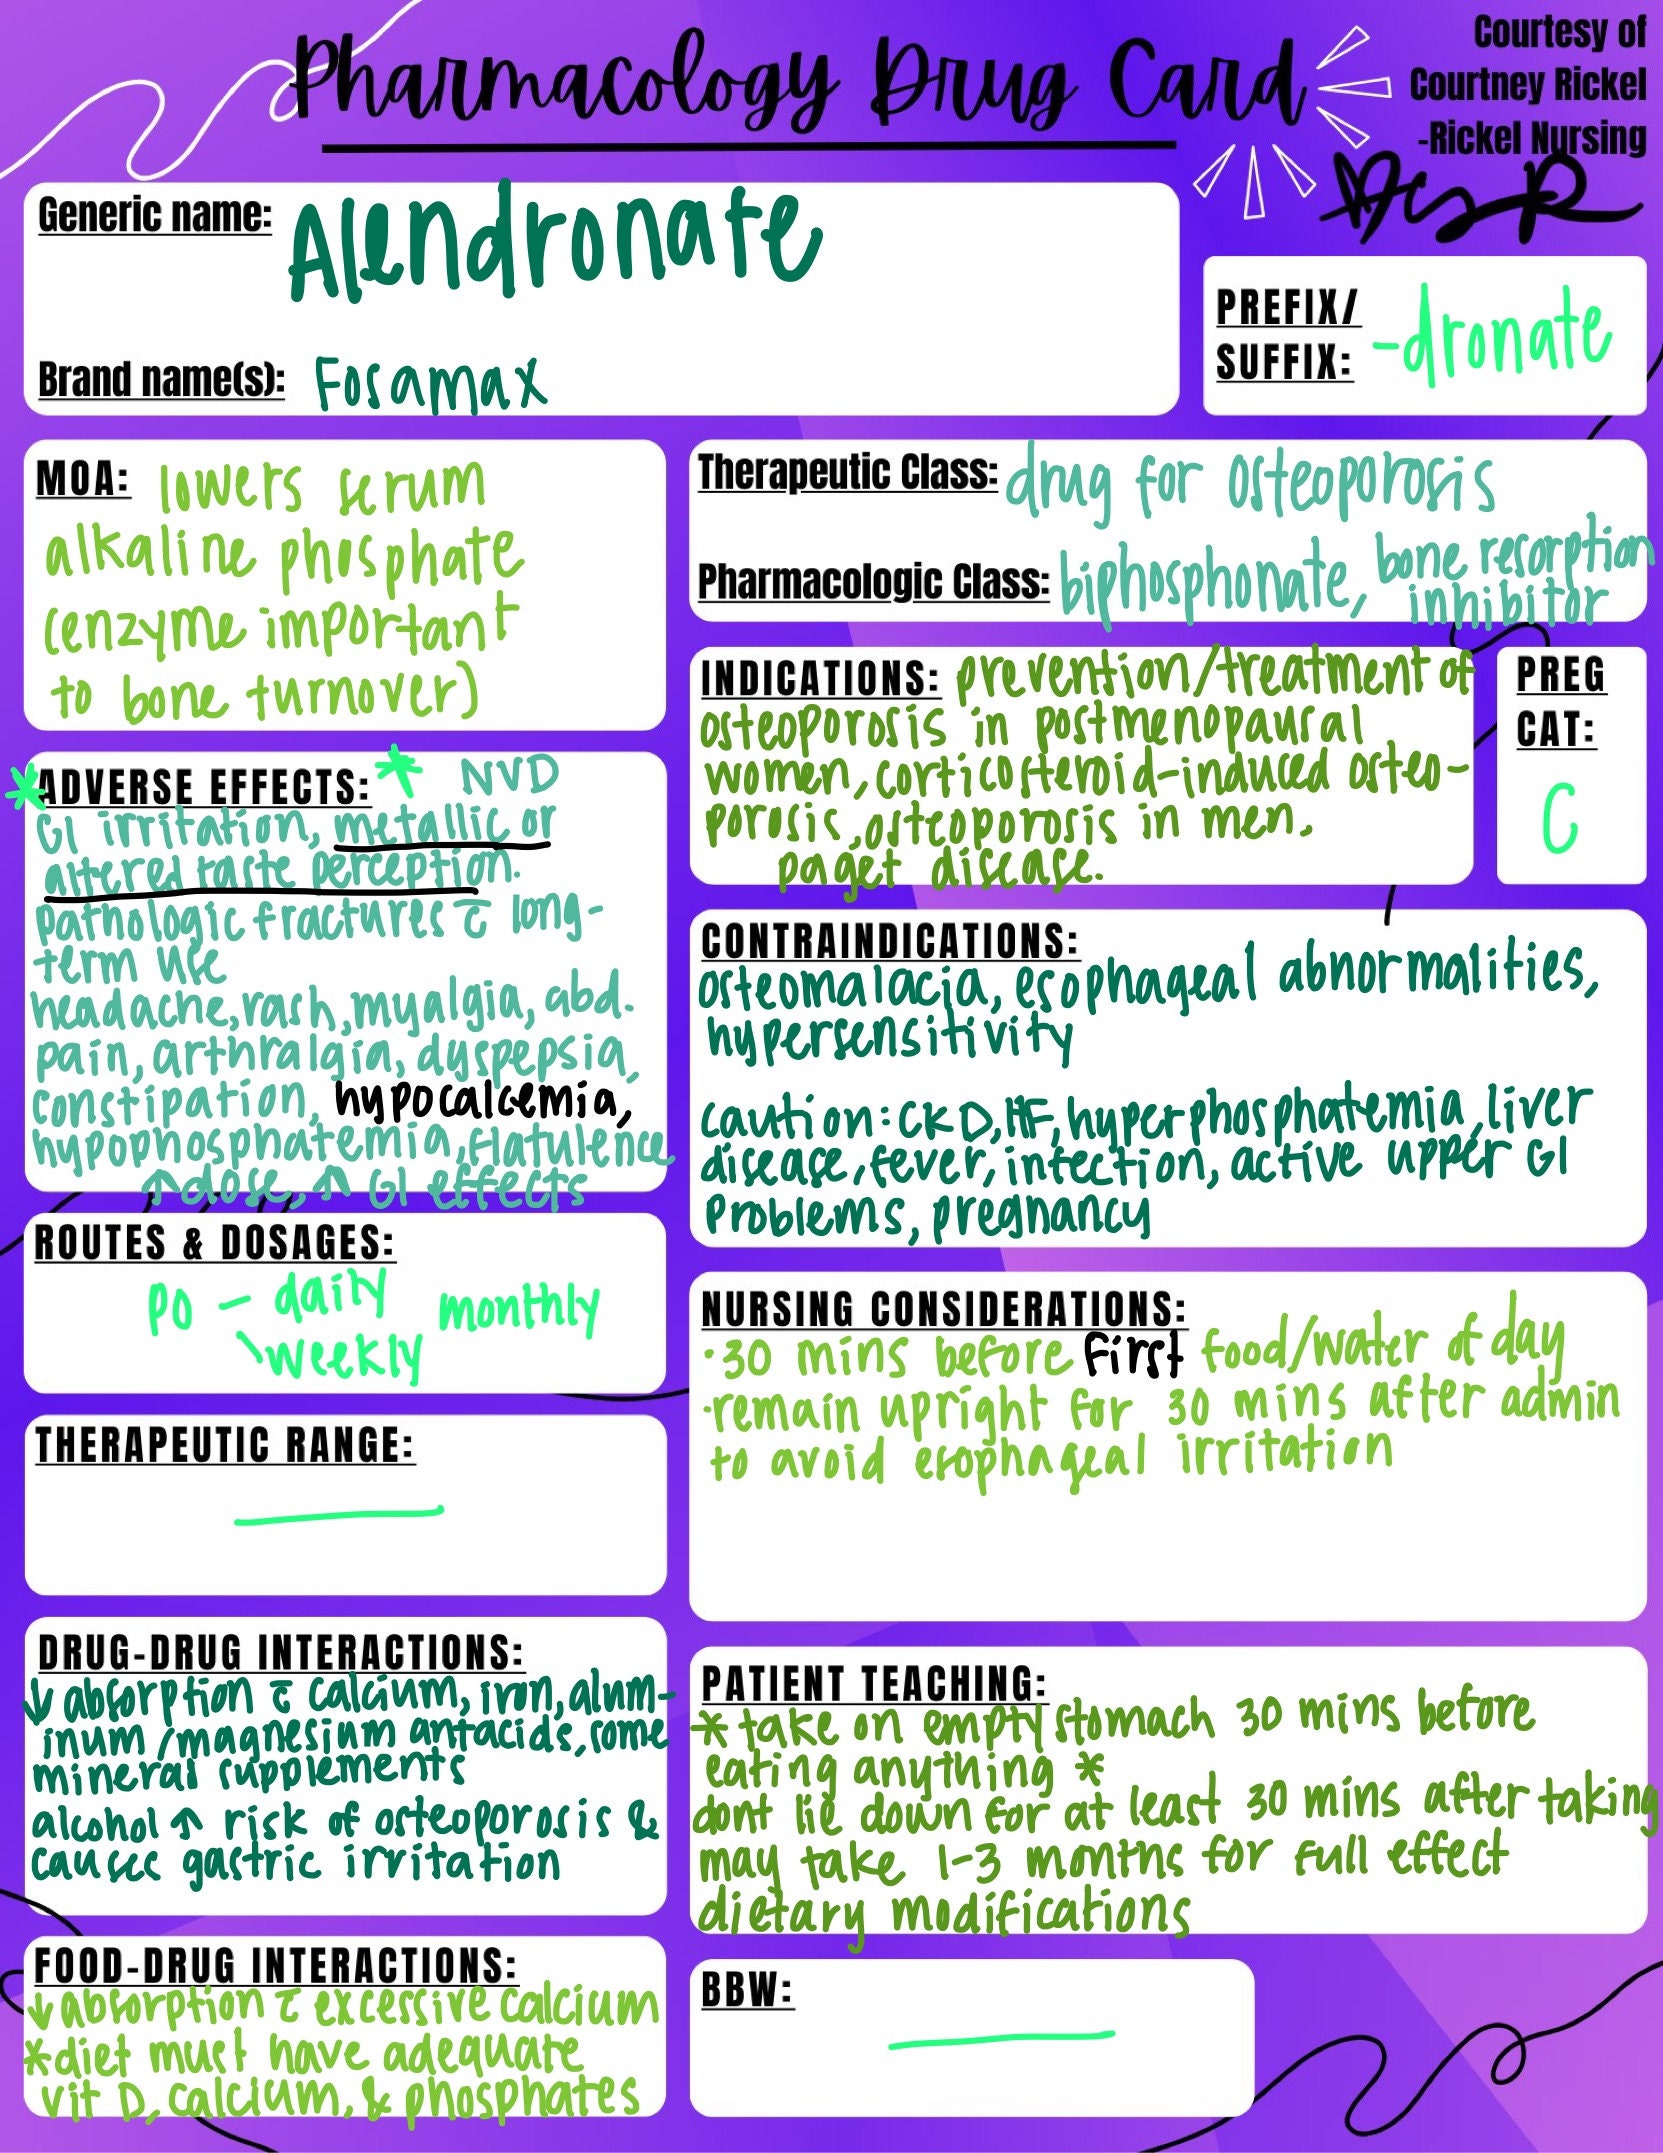 Pharmacology Drug Card
Courtesy of
Courtney Rickel
-Rickel Nursing
Generic name: Alendronate
Brand name(s): Fosamax
PREFIX/
SUFFIX: -dronate
MOA: lowers serum
alkaline phosphate
(enzyme important
to bone turnover)
Therapeutic Class: drug for osteoporosis
Pharmacologic Class: biphosphonate, bone resorption
inhibitor
INDICATIONS: prevention/treatment of
osteoporosis in postmenopausal
women, corticosteroid-induced osteo-
porosis, osteoporosis in men.
paget disease.
PREG
CAT:
C
*ADVERSE EFFECTS: * NVD
GI irritation, metallic or
altered taste perception.
pathologic fractures c̄ long-
term use
headache, rash, myalgia, abd.
pain, arthralgia, dyspepsia,
constipation, hypocalcemia,
hypophosphatemia, flatulence
↑ dose, ↑ GI effects
CONTRAINDICATIONS:
osteomalacia, esophageal abnormalities,
hypersensitivity
caution: CKD, HF, hyperphosphatemia, liver
disease, fever, infection, active upper GI
problems, pregnancy
ROUTES & DOSAGES:
PO - daily monthly
\weekly
NURSING CONSIDERATIONS:
· 30 mins before first food/water of day
· remain upright for 30 mins after admin
to avoid esophageal irritation
THERAPEUTIC RANGE:
DRUG-DRUG INTERACTIONS:
↓ absorption c̄ calcium, iron, alum-
inum/magnesium antacids, some
mineral supplements
alcohol ↑ risk of osteoporosis &
causes gastric irritation
PATIENT TEACHING:
* take on empty stomach 30 mins before
eating anything *
dont lie down for at least 30 mins after taking
may take 1-3 months for full effect
dietary modifications
FOOD-DRUG INTERACTIONS:
↓ absorption c̄ excessive calcium
* diet must have adequate
vit D, calcium, & phosphates
BBW: